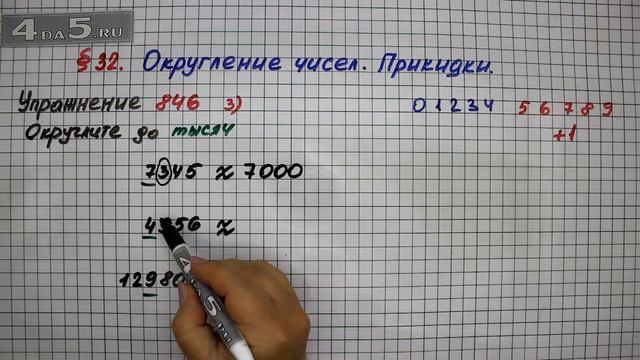 4DA5.RU
§32. Округление чисел. Прикидки.
Упражнение 846 3)
0 1 2 3 4 5 6 7 8 9
+1
Округлите до тысяч
7345 ≈ 7000
56 ≈
1298
4DA5.RU